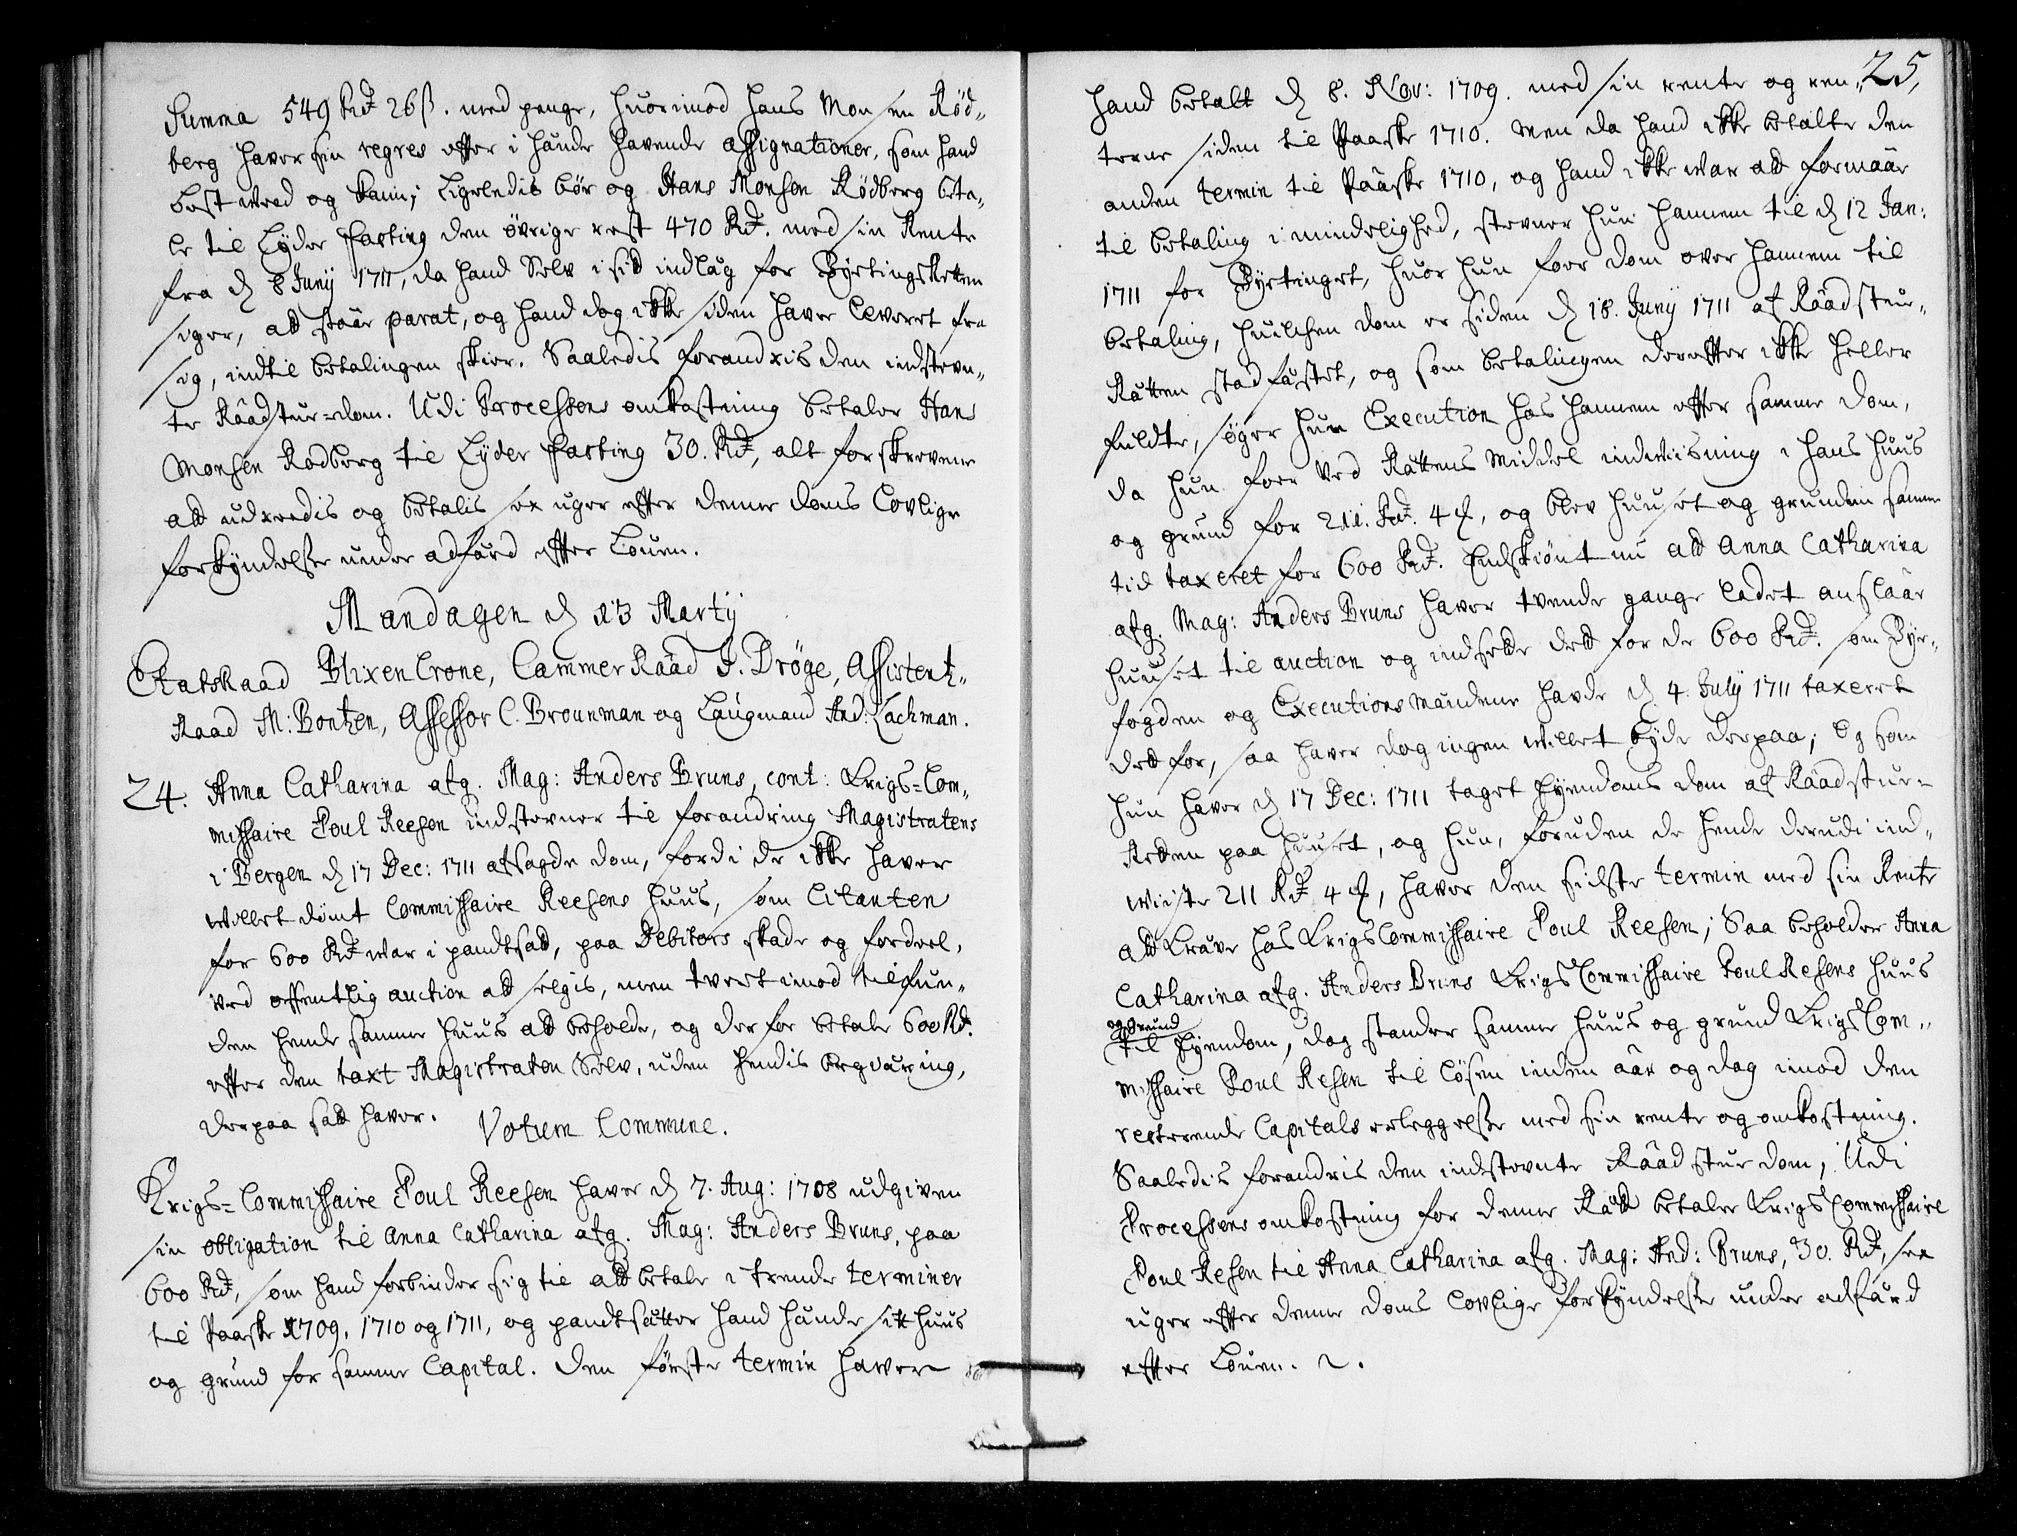 Summa 549 Rd 26 ß. med penge, huorimod Hans Monsen Rød„
berg haver sin regres effter i hænde havende assignationer, som hand
best veed og kand; Ligeledis bør og Hans Monsen Rødberg beta„
le til Lyder Fasting den øvrige rest 470 Rd. med sin Rente
fra d 8 Junij 1711, da hand Selv i sid indlæg for Byetings Retten
siger, att staar parat, og hand dog ikke siden haver leveret fra
sig, indtil betalingen skier. Saaledis forandris den indstevn„
te Raadstue-dom. Udi Processens omkostning betaler Hans
Monsen Rødberg til Lyder Fasting 30. Rd, alt forskrevene
att udreedis og betalis sex uger effter denne doms Lovlige
forkyndelsse under adfærd effter Louen.
Mandagen d 13 Martij
EtatsRaad Blixencrone, CammerRaad J. Dröge, Assistentz„
Raad M: Bontzen, Assessor C. Brounman og Laugmand And: Lachman.
24. Anna Catharina afg. Mag: Anders Bruns, cont: Krigs-Com„
missaire Poul Reesen indstevner til forandring Magistratens
i Bergen d 17 Dec: 1711 afsagde dom, fordi de ikke haver
villet dømt Commissaire Reesens huus, som Citanten
for 600 Rd var i pandtsatt, paa Debitors skade og fordeel,
ved offentlig auction att selgis, men tvert imod tilfun„
den hende samme huus att beholde, og derfor betale 600 Rd.
effter den taxt Magistraten Selv, uden hendis begæring,
derpaa satt haver.
Votum Commune.
Krigs-Commissaire Poul Reesen haver d 7. Aug: 1708 udgiven
sin obligation til Anna Catharina afg. Mag: Anders Bruns, paa
600 Rd, som hand forbinder sig til att betale i trende terminer
til Paaske 1709, 1710 og 1711, og pandtsætter hand hende sitt huus
og grund for samme Capital. Den første termin haver
25,
hand betalt d 8. Nov: 1709. med sin rente og ren„
terne siden til Paaske 1710. Men da hand ikke betalte den
anden termin til Paaske 1710, og hand ikke var att formaae
til betaling i mindelighed, stevner hun hannem til d 12 Jan:
1711 for Byetinget, huor hun faar dom over hannem til
betaling, huilchen dom er siden d 18. Junij 1711 af Raadstue„
Rætten stadfæstet, og som betalingen dereffter ikke heller
fuldte, søger hun Execution hos hannem effter samme dom,
da hun faar ved Rættens middel indvisning i hans huus
og grund for 211. Rd. 4 ß, og blev huuset og grunden samme
tid taxeret for 600 Rd. Endskiønt nu att Anna Catharina
afg. Mag: Anders Bruns haver tvende gange ladet anslaae
huuset til auction og indsette dett for de 600 Rd. som Bye„
fogden og Executions mændene havde d 4. Julij 1711 taxeret
dett for, saa haver dog ingen villet byde derpaa; Og som
hun haver d 17 Dec: 1711 taget Eyendoms dom af Raadstue-
Retten paa huuset, og hun, foruden de hende derudi ind„
viiste 211 Rd 4 ß, haver den sidste termin med sin Rente
att kræve hos Krigs Commissaire Poul Reesen; Saa beholder Anna
Catharina afg. Anders Bruns Krigs Commissaire Poul Resens huus
og grund
til Eyendom, dog stander samme huus og grund Krigs Com„
missaire Poul Resen til løsen inden aar og dag imod den
resterende Capitals erleggelsse med sin rente og omkostning.
Saaledis forandris den indstevnte Raadstue dom, Udi
Processens omkostning for denne Rætt betaler Krigs Commissaire
Poul Resen til Anna Catharina afg. Mag: And: Bruns, 30. Rd, sex
uger effter denne doms lovlige forkyndelsse under adfærd
effter Louen.